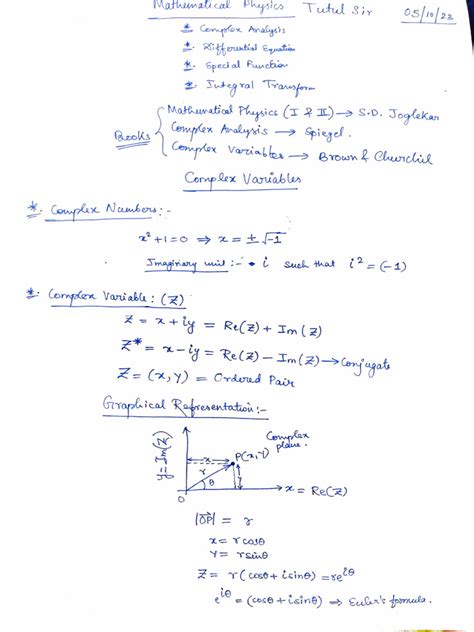 Mathematical Physics Tutul Sir 05/10/23
* Complex Analysis
* Differential Equation
* Special Function
* Integral Transform
Books { Mathematical Physics (I & II) → S.D. Joglekar
Complex Analysis → Spiegel.
Complex Variables → Brown & Churchil
Complex Variables
* Complex Numbers:-
x² + 1 = 0 ⇒ x = ± √-1
Imaginary unit :- • i such that i² = (-1)
* Complex Variable: (Z)
Z = x + iy = Re(Z) + Im(Z)
Z* = x - iy = Re(Z) - Im(Z) → Conjugate
Z = (x, y) = Ordered Pair
Graphical Representation:-
Complex plane.
y = Im(Z)
x
P(x,y)
r
θ
y
O
→ x = Re(Z)
|OP⃗| = r
x = r cosθ
y = r sinθ
Z = r(cosθ + i sinθ) = re^iθ
e^iθ = (cosθ + i sinθ) ⇒ Euler's formula.